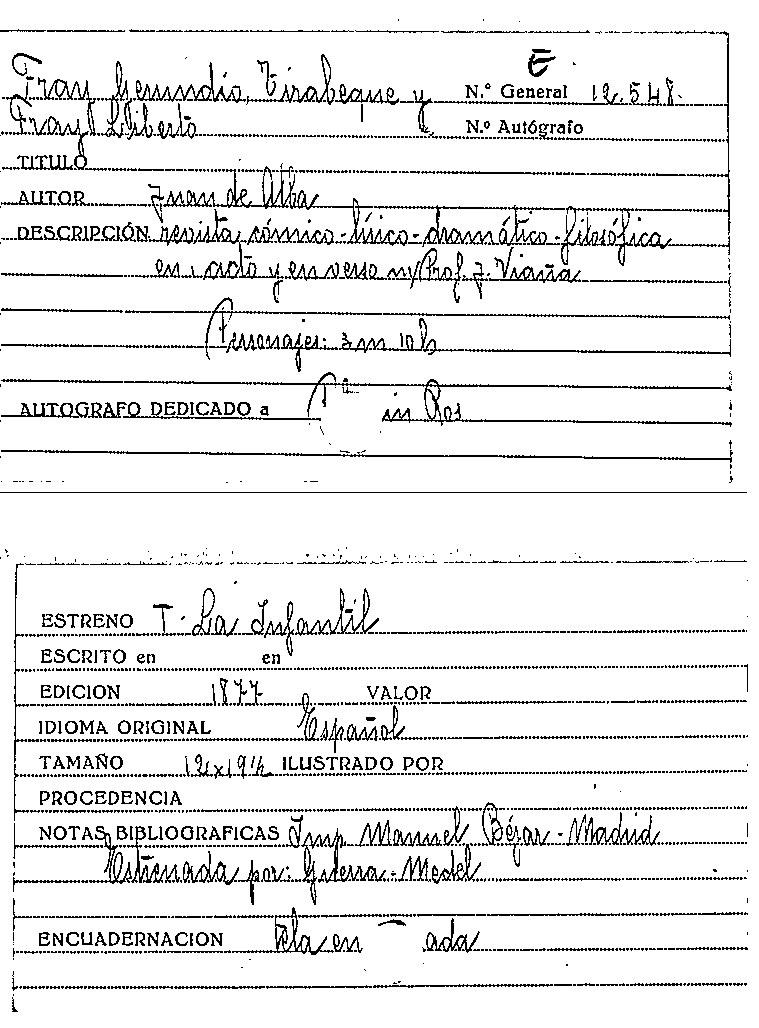 E
Fray Gerundio, Tirabeque y N.º General 12.548.
Fray Lliberto N.º Autógrafo
TITULO
AUTOR Juan de Alba
DESCRIPCIÓN revista cómico-lírico-dramático-filosófica
en 1 acto y en verso m/ Prof. J. Viaña
Personajes: 3 m 10 h
AUTOGRAFO DEDICADO a in Ros
ESTRENO T. La Infantil
ESCRITO en en
EDICION 1877 VALOR
IDIOMA ORIGINAL Español
TAMAÑO 12x19½ ILUSTRADO POR
PROCEDENCIA
NOTAS BIBLIOGRAFICAS Imp. Manuel Béjar - Madrid
Estrenada por: - Medel
ENCUADERNACION Tela en ada